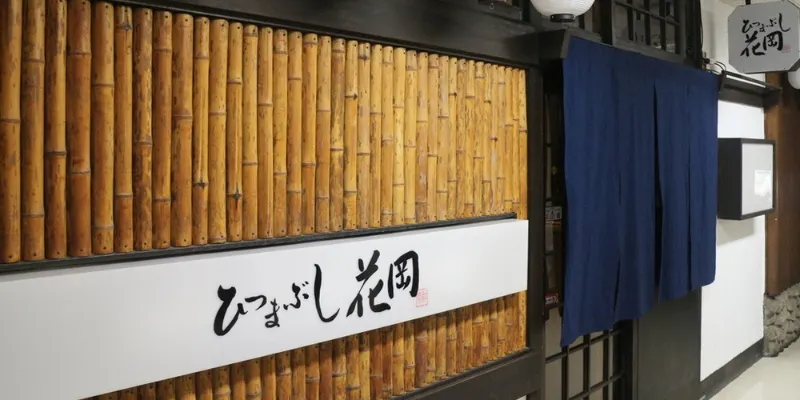 ひつまぶし 花岡
ひつまぶし
花岡